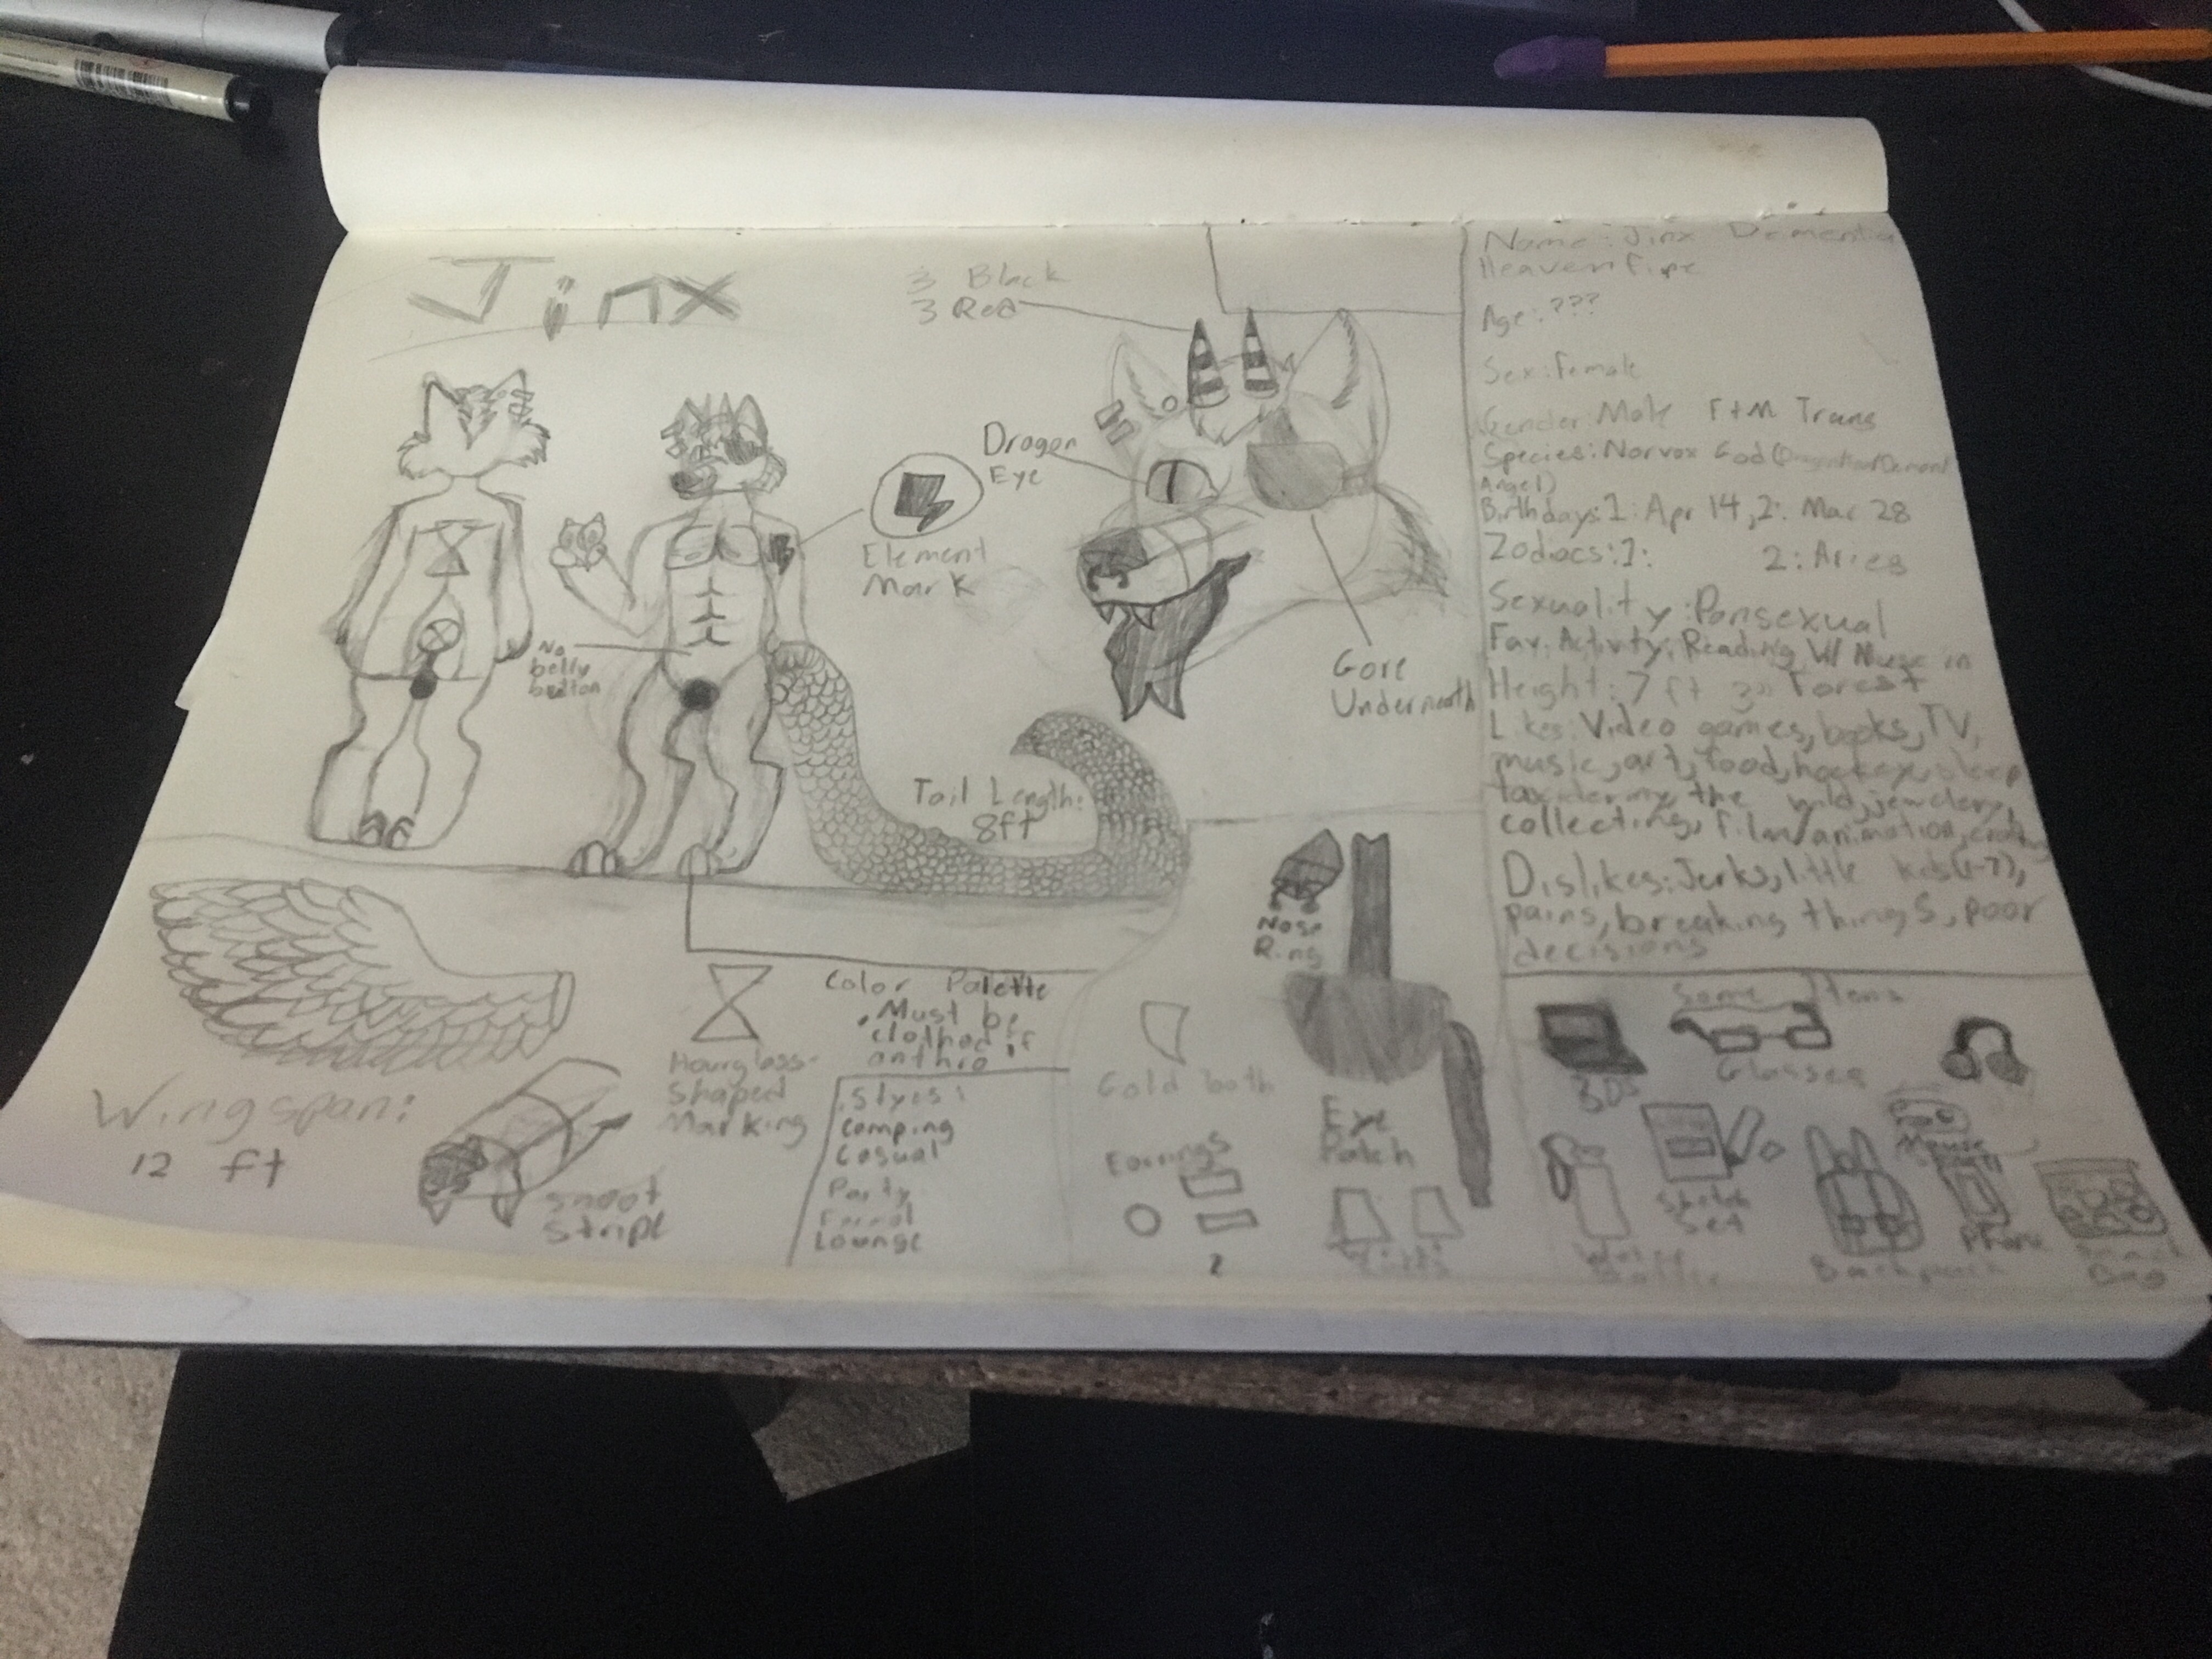 Jinx
3 Black
3 Red
Dragon
Eye
Element
Mark
No
belly
button
Gore
Underneath
Tail Length:
8ft
Wingspan:
12 ft
Snoot
Stripe
Hourglass-
Shaped
Marking
Color Palette
• Must be
clothed if
anthro
Styes:
Camping
Casual
Party
Formal
Lounge
Nose
Ring
Gold both
Earrings
2
Eye
Patch
Name: Jinx Dementia
Heavenfire
Age: ???
Sex: Female
Gender: Male FtM Trans
Species: Norvox God (
Angel)
Birthdays: 1: Apr 14, 2: Mar 28
Zodiacs: 1: 2: Aries
Sexuality: Pansexual
Fav. Activity: Reading W/ Music in
Forest
Height: 7 ft 3"
Likes: Video games, books, TV,
music, art, food, hockey, sleep
taxidermy, the wild, jewelery,
collecting, film/animation,
Dislikes: Jerks, little kids (1-7),
pains, breaking things, poor
decisions
Some Items
3DS
Glasses
Mouse
Sketch
Set
Water
Bottle
Backpack
Phone
Bag